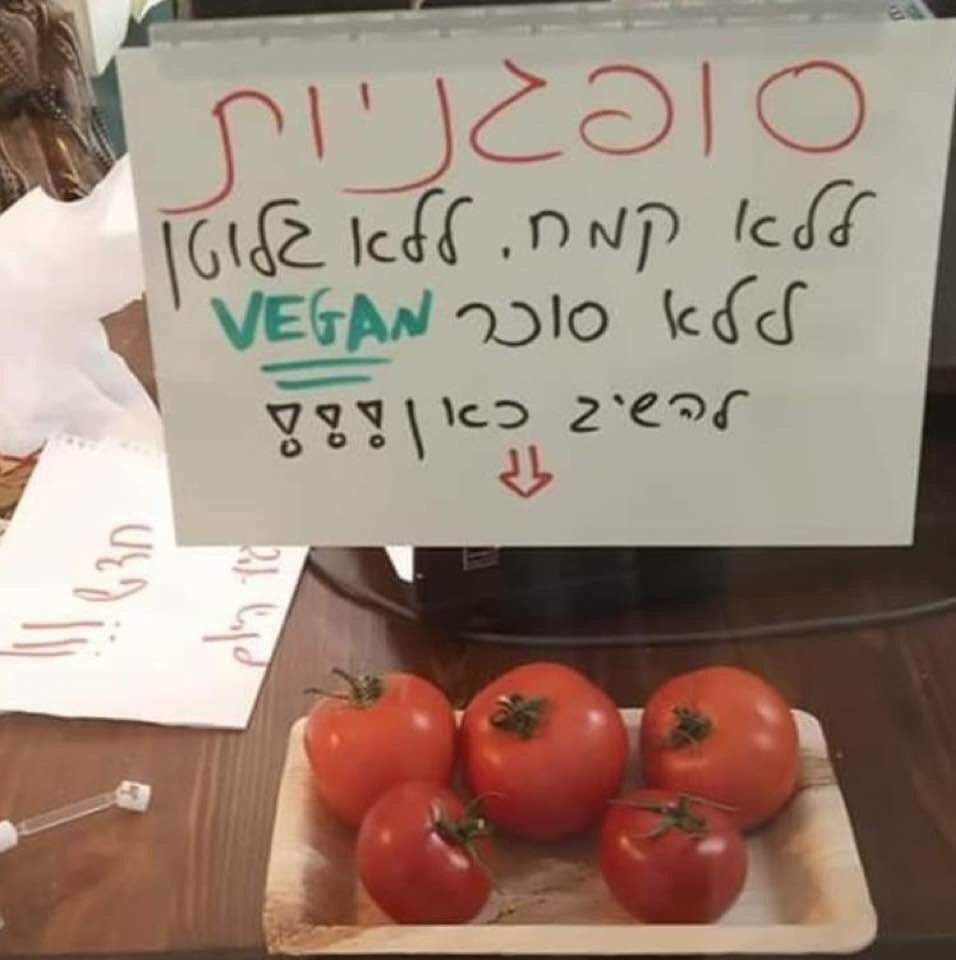 סופגניות
ללא קמח. ללא גלוטן
ללא סוכר VEGAN
להשיג כאן!!!
חדש!!!